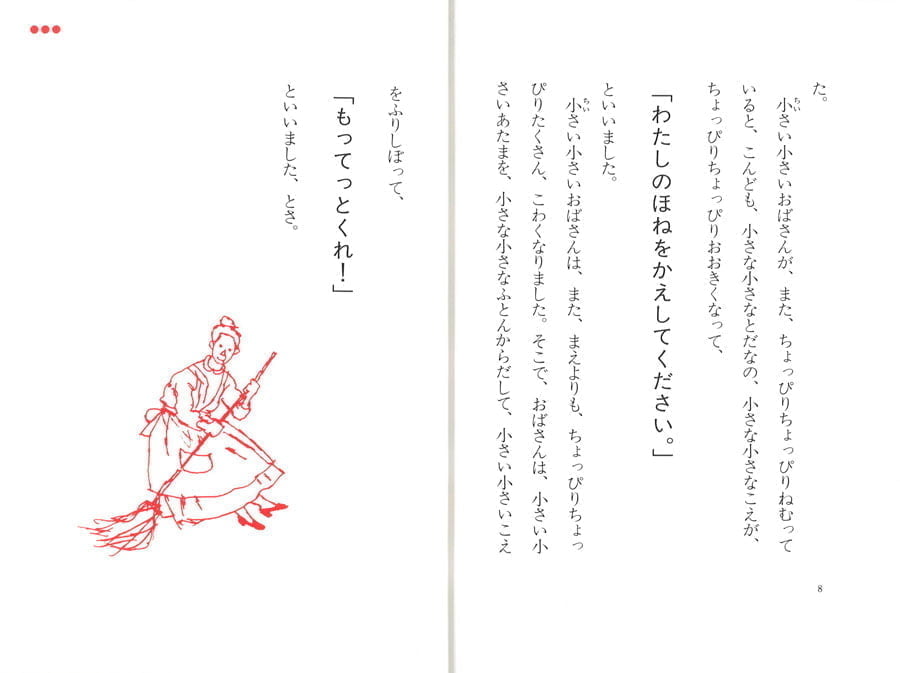 た。
小さい小さいおばさんが、また、ちょっぴりちょっぴりねむって
ちい
いると、こんども、小さな小さなとだなの、小さな小さなこえが、
ちょっぴりちょっぴりおおきくなって、
「わたしのほねをかえしてください。」
といいました。
小さい小さいおばさんは、また、まえよりも、ちょっぴりちょっ
ちい
ぴりたくさん、こわくなりました。そこで、おばさんは、小さい小
さいあたまを、小さな小さなふとんからだして、小さい小さいこえ
8
をふりしぼって、
「もってっとくれ！」
といいました、とさ。